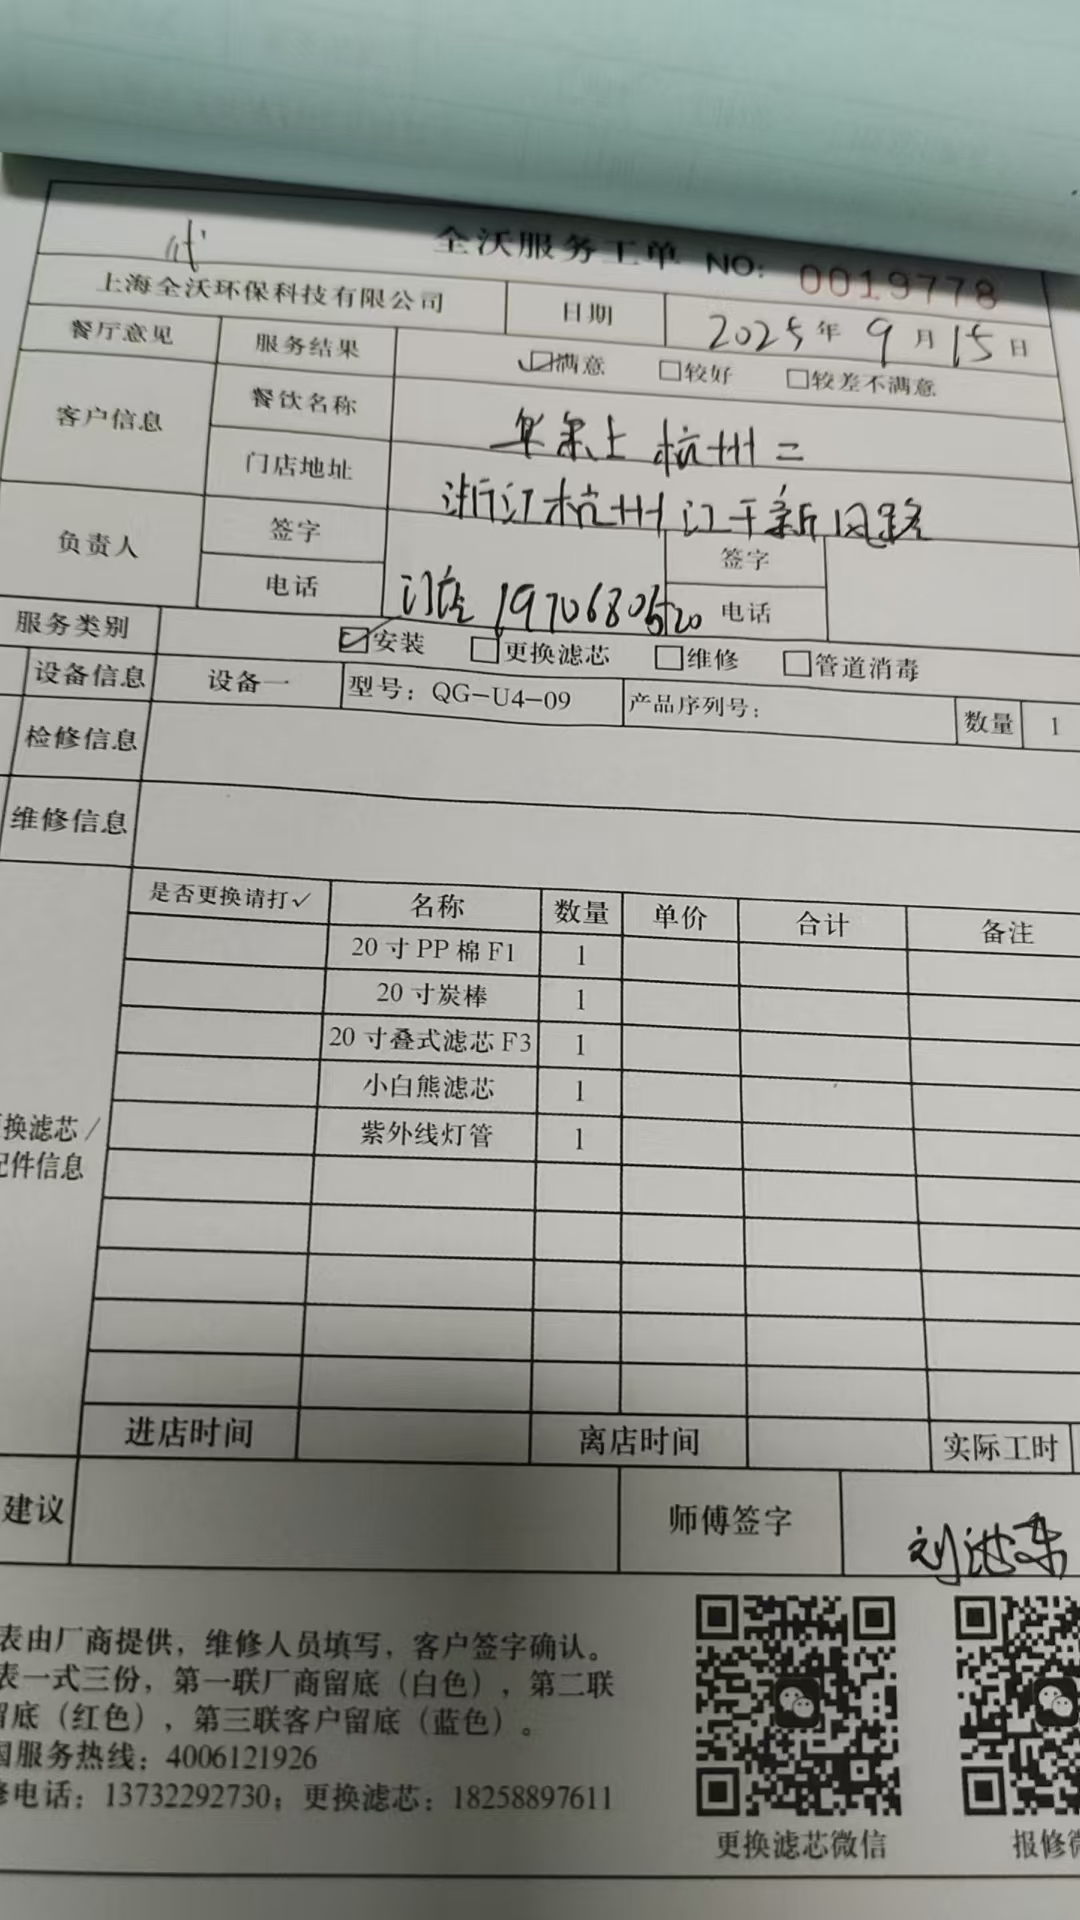 全沃服务工单 NO: 0019778
上海全沃环保科技有限公司 日期 2025年9月15日
餐厅意见 服务结果 ☑满意 □较好 □较差不满意
客户信息 餐饮名称 杭州二
门店地址 浙江杭州江干新风路
负责人 签字 签字
电话 门店 19706805520 电话
服务类别 ☑安装 □更换滤芯 □维修 □管道消毒
设备信息 设备一 型号：QG-U4-09 产品序列号： 数量 1
检修信息
维修信息
是否更换请打✓ 名称 数量 单价 合计 备注
20寸PP棉F1 1
20寸炭棒 1
20寸叠式滤芯F3 1
小白熊滤芯 1
紫外线灯管 1
换滤芯/
配件信息
进店时间 离店时间 实际工时
建议 师傅签字 刘
表由厂商提供，维修人员填写，客户签字确认。
表一式三份，第一联厂商留底（白色），第二联
留底（红色），第三联客户留底（蓝色）。
国服务热线：4006121926
修电话：13732292730；更换滤芯：18258897611
更换滤芯微信 报修微